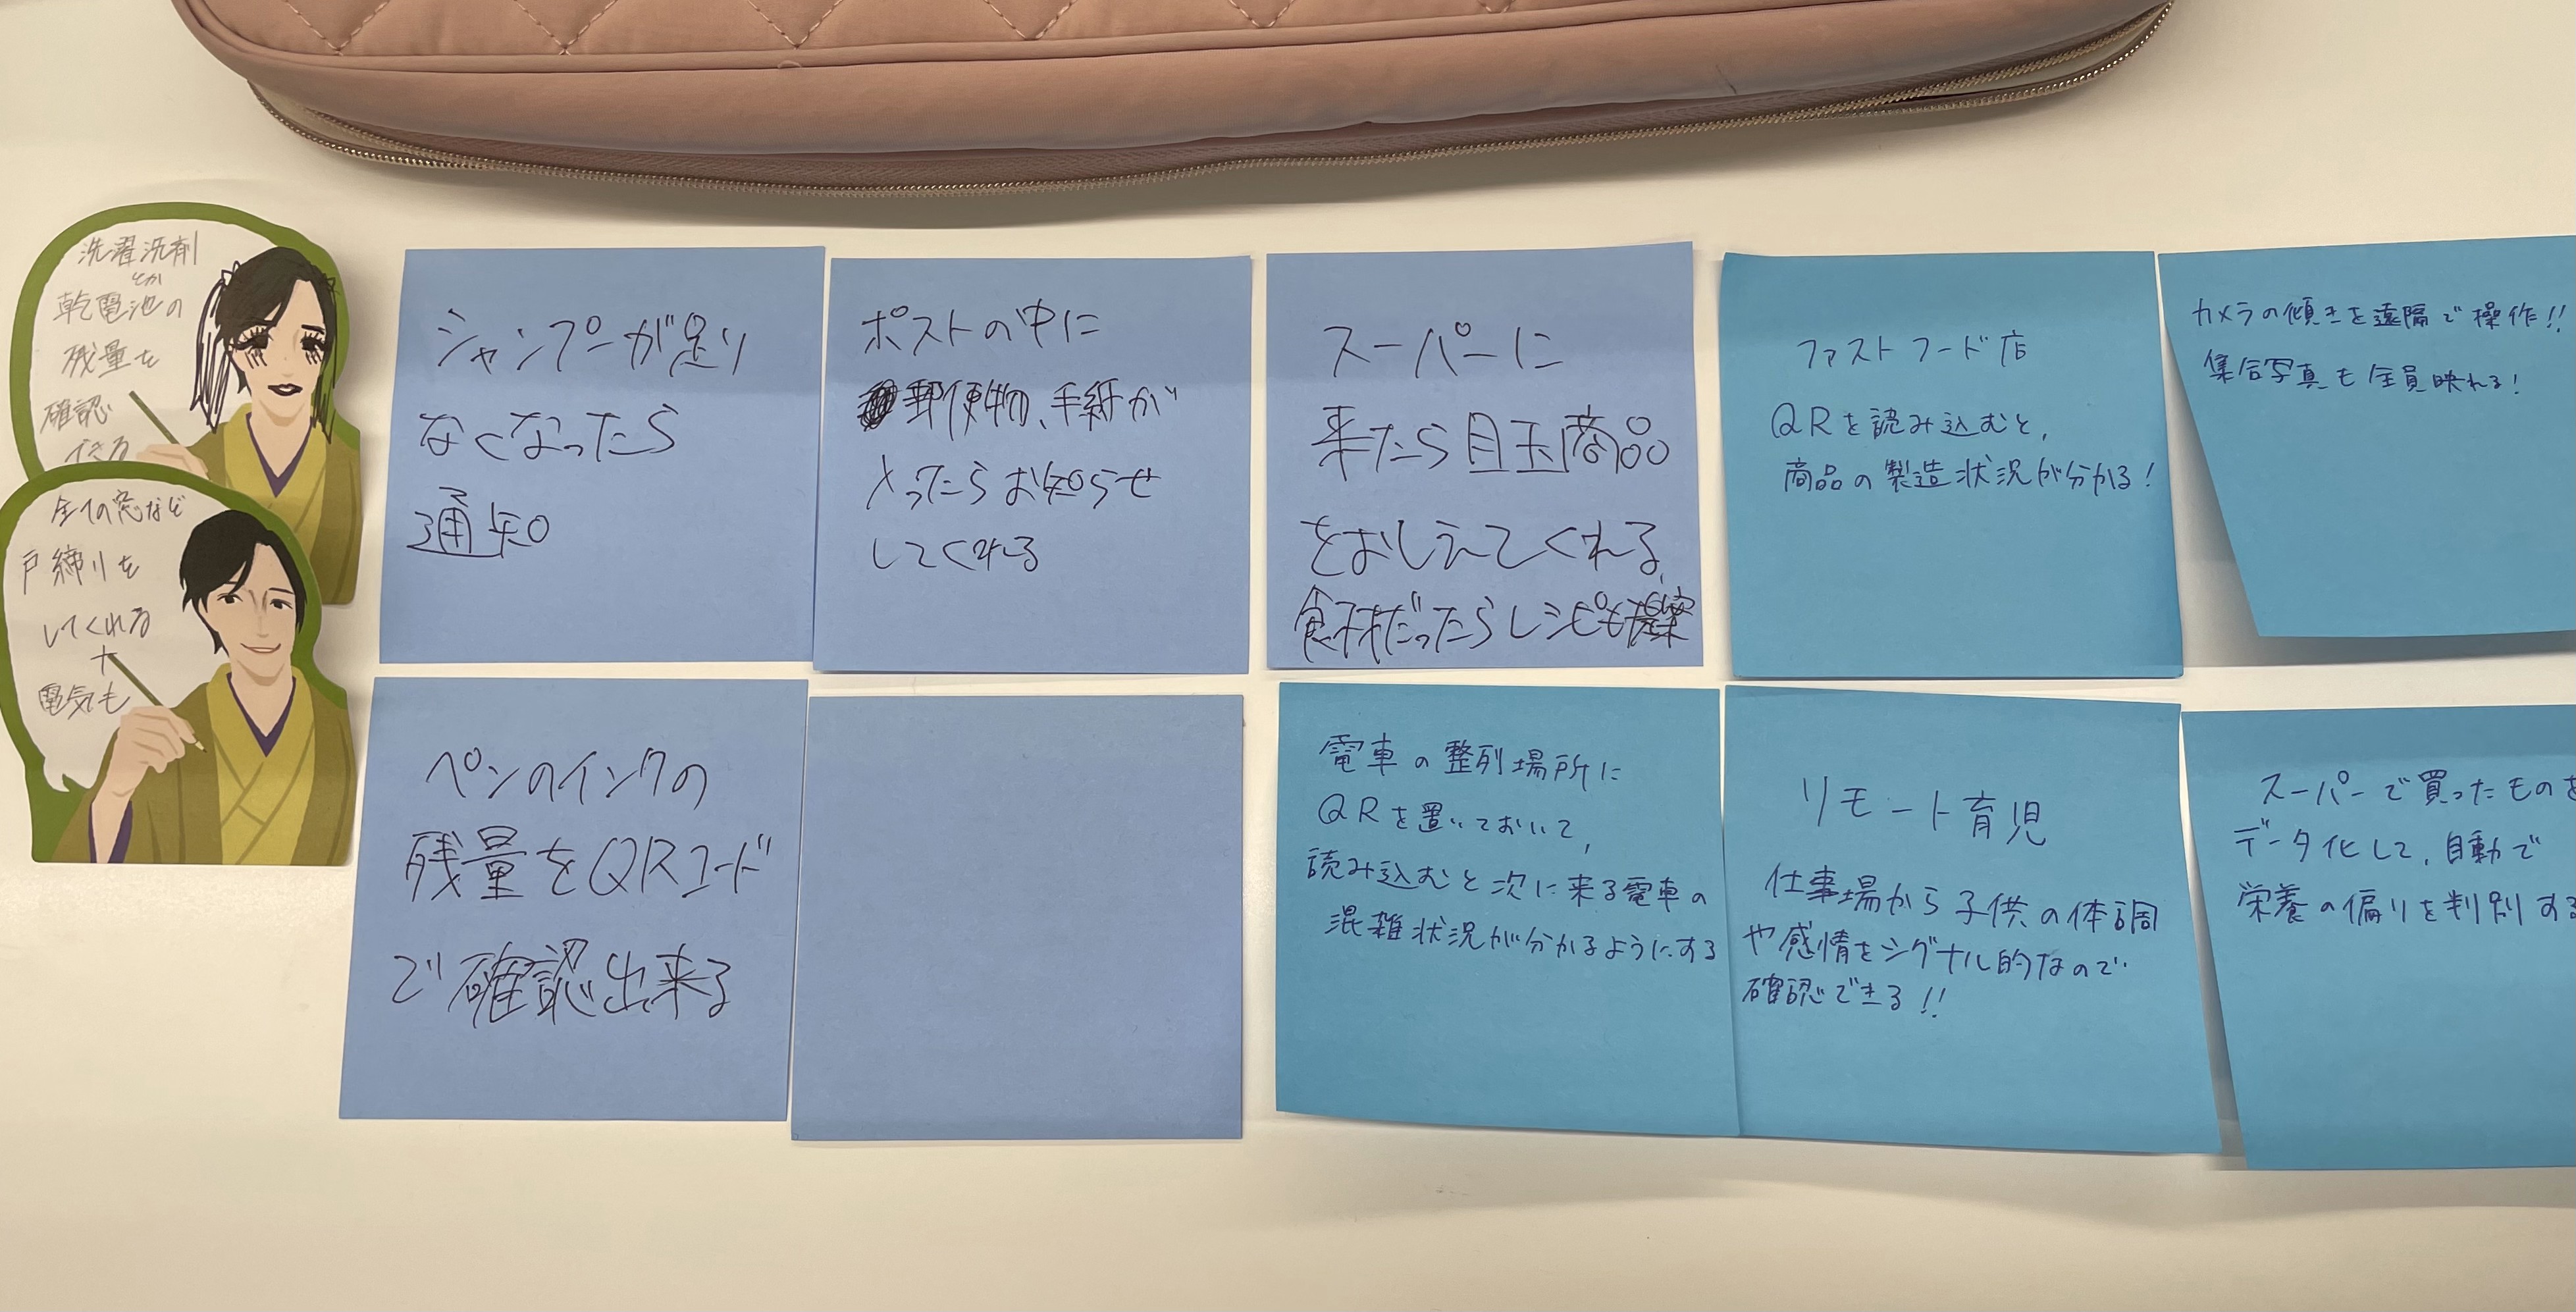 洗濯洗剤
とか
乾電池の
残量を
確認
できる
全ての窓など
戸締りを
してくれる
+
電気も
シャンプーが足り
なくなったら
通知
ポストの中に
郵便物、手紙が
入ったらお知らせ
してくれる
スーパーに
来たら目玉商品
をおしえてくれる、
食材だったらレシピも提案
ファストフード店
QRを読み込むと、
商品の製造状況が分かる!
カメラの傾きを遠隔で操作!!
集合写真も全員映れる!
ペンのインクの
残量をQRコード
で確認出来る
電車の整列場所に
QRを置いておいて、
読み込むと次に来る電車の
混雑状況が分かるようにする
リモート育児
仕事場から子供の体調
や感情をシグナル的なので
確認できる!!
スーパーで買ったものを
データ化して、自動で
栄養の偏りを判別する